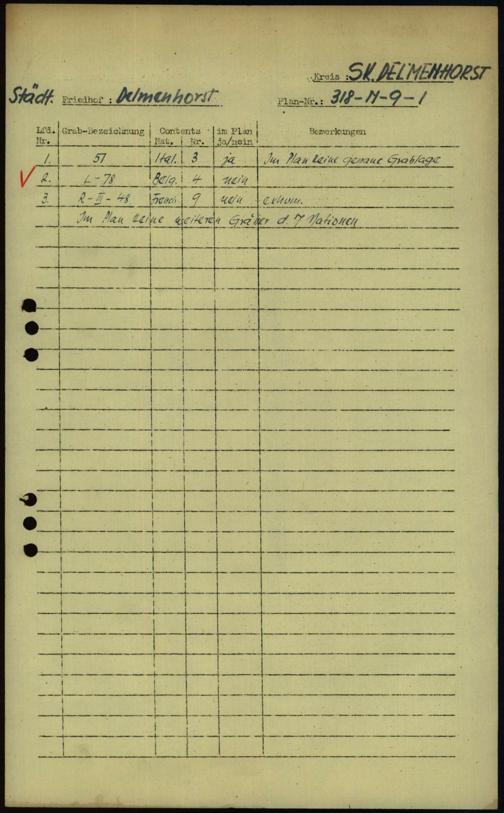 Kreis : SK. DELMENHORST
Städt. Friedhof : Delmenhorst Plan-Nr.: 318-N-9-1
Lfd. Nr. Grab-Bezeichnung Contents Nat. Nr. im Plan ja/nein Bemerkungen
1. 51 Ital. 3 ja Im Plan keine genaue Grablage
2. L-78 Belg. 4 nein
3. R-III-48 Französ. 9 nein exhum.
Im Plan keine weiteren Gräber d. 7 Nationen